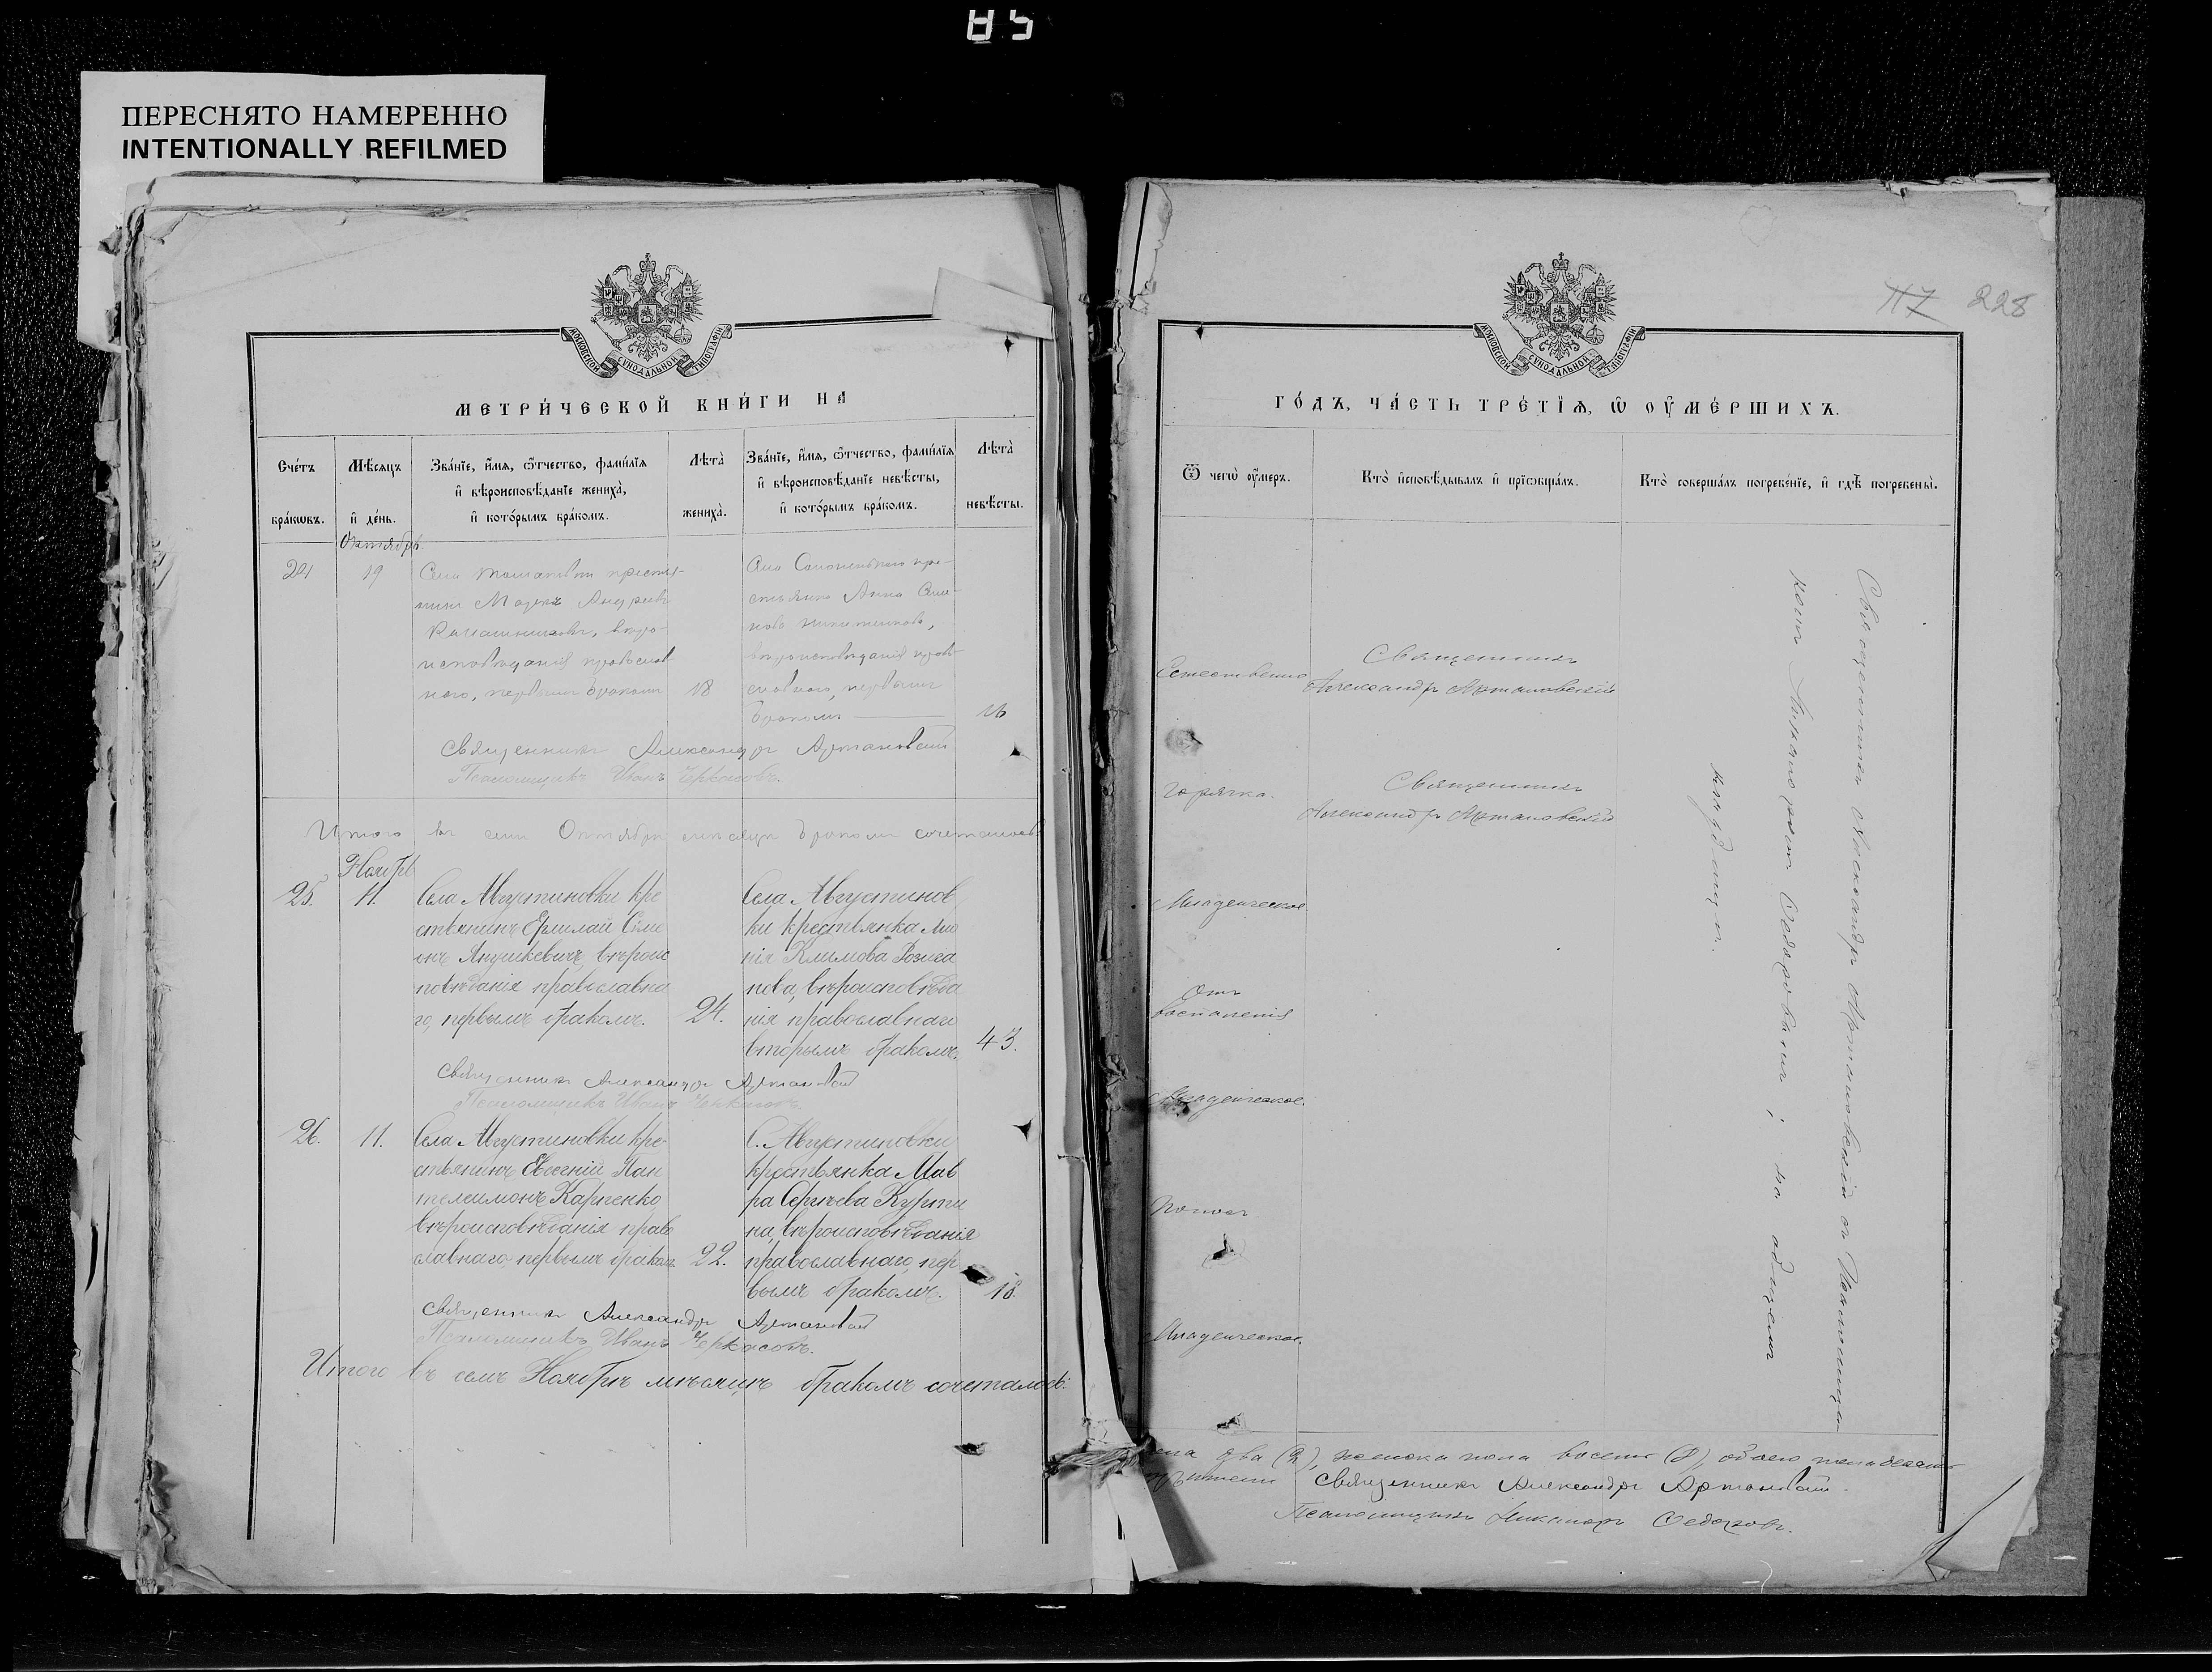 85
ПЕРЕСНЯТО НАМЕРЕННО
INTENTIONALLY REFILMED
МОСКОВСКОЙ СѴНОДАЛЬНОЙ ТИПОГРАФІИ
МЕТРИ́ЧЕСКОЙ КНИ́ГИ НА
Сче́тъ бра́кωвъ.
Мѣ́сяцъ и҆ де́нь.
Зва́нїе, и҆́мѧ, ѻ҆́тчество, фами́лїѧ
и҆ вѣроисповѣ́данїе жениха̀,
и҆ кото́рымъ бра́комъ.
Лѣта̀ жениха̀.
Зва́нїе, и҆́мѧ, ѻ҆́тчество, фами́лїѧ
и҆ вѣроисповѣ́данїе невѣ́сты,
и҆ кото́рымъ бра́комъ.
Лѣта̀ невѣ́сты.
Октябрь
24 19
кресть-
Андреевъ
, вѣро-
исповѣданія православ-
наго, первымъ бракомъ 18
кре-
стьянка Анна Семе-
нова
вѣроисповѣданія право-
славнаго, первымъ
бракомъ 16
Священникъ Александръ Артановскій
Псаломщикъ Иванъ Черкасовъ.
Итого въ семъ Октябрѣ мѣсяцѣ бракомъ сочеталось
Ноябрь
25. 11.
Села Августиновки кре
стьянинъ Ермилай Симе
онъ Янушкевичъ, вѣроис
повѣданія православна
го, первымъ бракомъ. 24.
Села Августинов
ки крестьянка
Климова
нова, вѣроисповѣда
нія православнаго
вторымъ бракомъ. 43.
Священникъ Александръ Артановскій
Псаломщикъ Иванъ Черкасовъ.
26. 11.
Села Августиновки кре-
стьянинъ Евгеній Пан
телеимонъ Карпенко
вѣроисповѣданія право
славнаго первымъ браком. 22.
С. Августиновки
крестьянка Мав
ра Сергѣева Курти
на, вѣроисповѣданія
православнаго, пер
вымъ бракомъ. 18.
Священникъ Александръ Артановскій
Псаломщикъ Иванъ Черкасовъ.
Итого въ семъ Ноябрѣ мѣсяцѣ бракомъ сочеталось:
117 228
МОСКОВСКОЙ СѴНОДАЛЬНОЙ ТИПОГРАФІИ
ГО́ДЪ, ЧА́СТЬ ТРЕ́ТЇѦ, Ѡ҆ ОУ҆МЕ́РШИХЪ.
Ѿ чегѡ̀ оу҆́меръ.
Кто̀ и҆сповѣ́дывалъ и҆ прїѡбща́лъ.
Кто̀ соверша́лъ погребе́нїе, и҆ гдѣ̀ погребены̀.
Естественно
Священникъ
Александръ Артановскій
Горячка.
Священникъ
Александръ Артановскій
Младенческое.
Отъ
воспаленія
Младенческое.
Поносъ
Младенческое.
Священникъ Александръ Артановскій съ Псаломщи-
комъ Никаноромъ Ѳедоровымъ; на общемъ
кладбищѣ.
два (2), женска пола восемь (8), обоего пола десять
Священникъ Александръ Артановскій.
Псаломщикъ Никаноръ Ѳедоровъ.